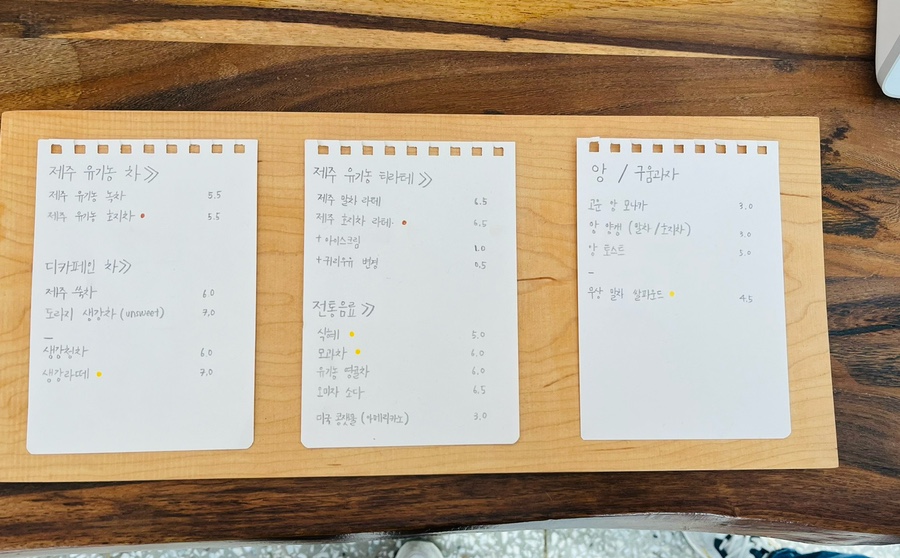 제주 유기농 차 》
제주 유기농 녹차 5.5
제주 유기농 호지차 5.5
디카페인 차 》
제주 쑥차 6.0
도라지 생강차 (unsweet) 7.0
생강청차 6.0
생강라떼 7.0
제주 유기농 티라테 》
제주 말차 라테 6.5
제주 호지차 라테 6.5
+ 아이스크림 1.0
+ 귀리우유 변경 0.5
전통음료 》
식혜 5.0
모과차 6.0
유기농 댕귤차 6.0
오미자 소다 6.5
미국 콩탯물 (아메리카노) 3.0
앙 / 구움과자
고운 앙 모나카 3.0
앙 양갱 (말차/호지차) 3.0
앙 토스트 5.0
우상 말차 쌀파운드 4.5